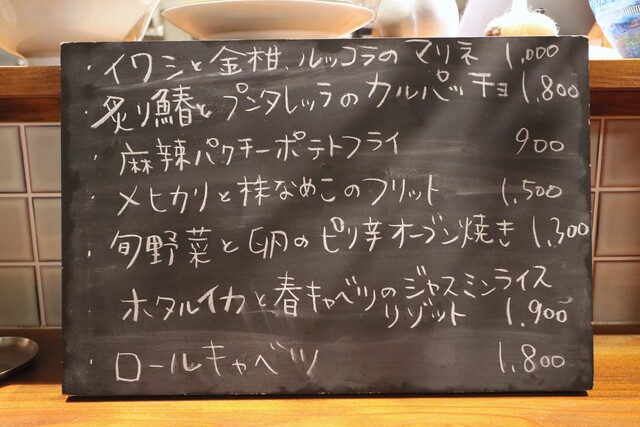 ・イワシと金柑、ルッコラのマリネ 1,000
・炙り鰆とプンタレッラのカルパッチョ 1,800
・麻辣パクチーポテトフライ 900
・メヒカリと株なめこのフリット 1,500
・旬野菜と卵のピリ辛オーブン焼き 1,300
・ホタルイカと春キャベツのジャスミンライス
リゾット 1,900
・ロールキャベツ 1,800